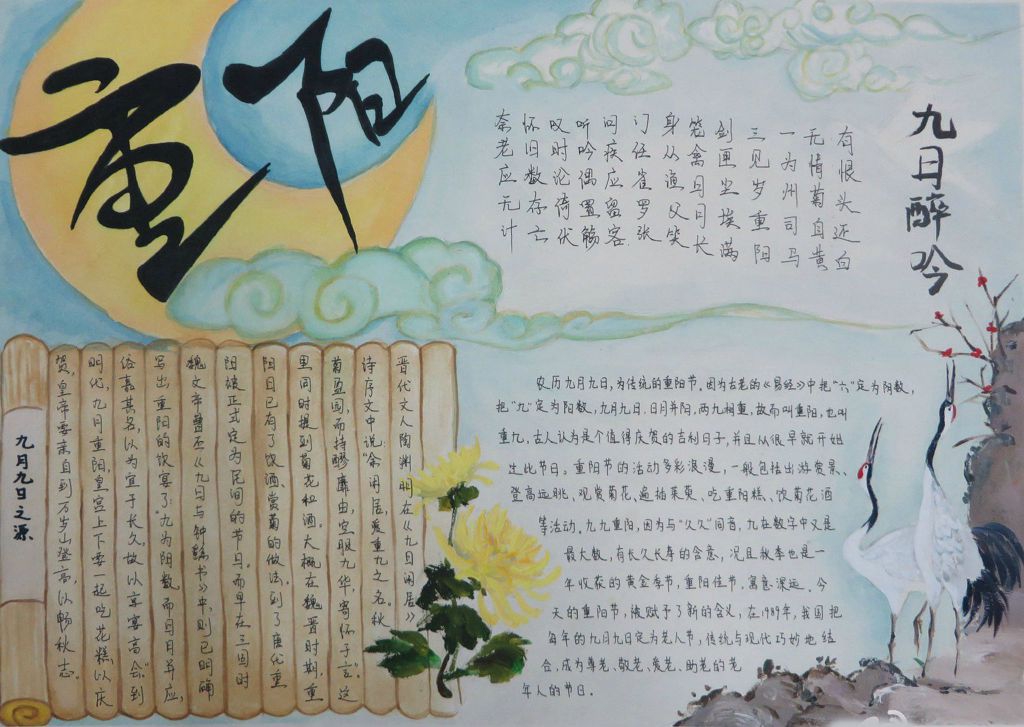 重阳
九日醉吟
有恨头还白
无情菊自黄
一为州司马
三见岁重阳
剑匣尘埃满
笼禽日月长
身从渔父笑
门任雀罗张
问疾应留客
听吟偶置觞
叹时论倚伏
怀旧数存亡
奈老应无计
晋代文人陶渊明在《九日闲居》
诗序文中说:“余闲居,爱重九之名。秋
菊盈园,而持醪靡由,空服九华,寄怀于言”。这
里同时提到菊花和酒。大概在魏晋时期,重
阳日已有了饮酒、赏菊的做法,到了唐代重
阳被正式定为民间的节日。而早在三国时
魏文帝曹丕《九日与钟繇书》中,则已明确
写出重阳的饮宴了:“九为阳数,而日月并应,
俗嘉其名,以为宜于长久,故以享宴高会。”到
明代,九月重阳,皇宫上下要一起吃花糕,以庆
贺,皇帝要亲自到万岁山登高,以畅秋志。
九月九日之源
农历九月九日,为传统的重阳节。因为古老的《易经》中把“六”定为阴数,
把“九”定为阳数,九月九日,日月并阳,两九相重,故而叫重阳,也叫
重九,古人认为是个值得庆贺的吉利日子,并且从很早就开始
过此节日。重阳节的活动多彩浪漫,一般包括出游赏景、
登高远眺、观赏菊花、遍插茱萸、吃重阳糕、饮菊花酒
等活动。九九重阳,因为与“久久”同音,九在数字中又是
最大数,有长久长寿的含意,况且秋季也是一
年收获的黄金季节,重阳佳节,寓意深远。今
天的重阳节,被赋予了新的含义,在1989年,我国把
每年的九月九日定为老人节,传统与现代巧妙地结
合,成为尊老、敬老、爱老、助老的老
年人的节日。